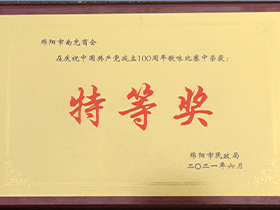 绵阳市南充商会
在庆祝中国共产党成立100周年歌咏比赛中荣获:
特等奖
绵阳市民政局
二〇二一年六月